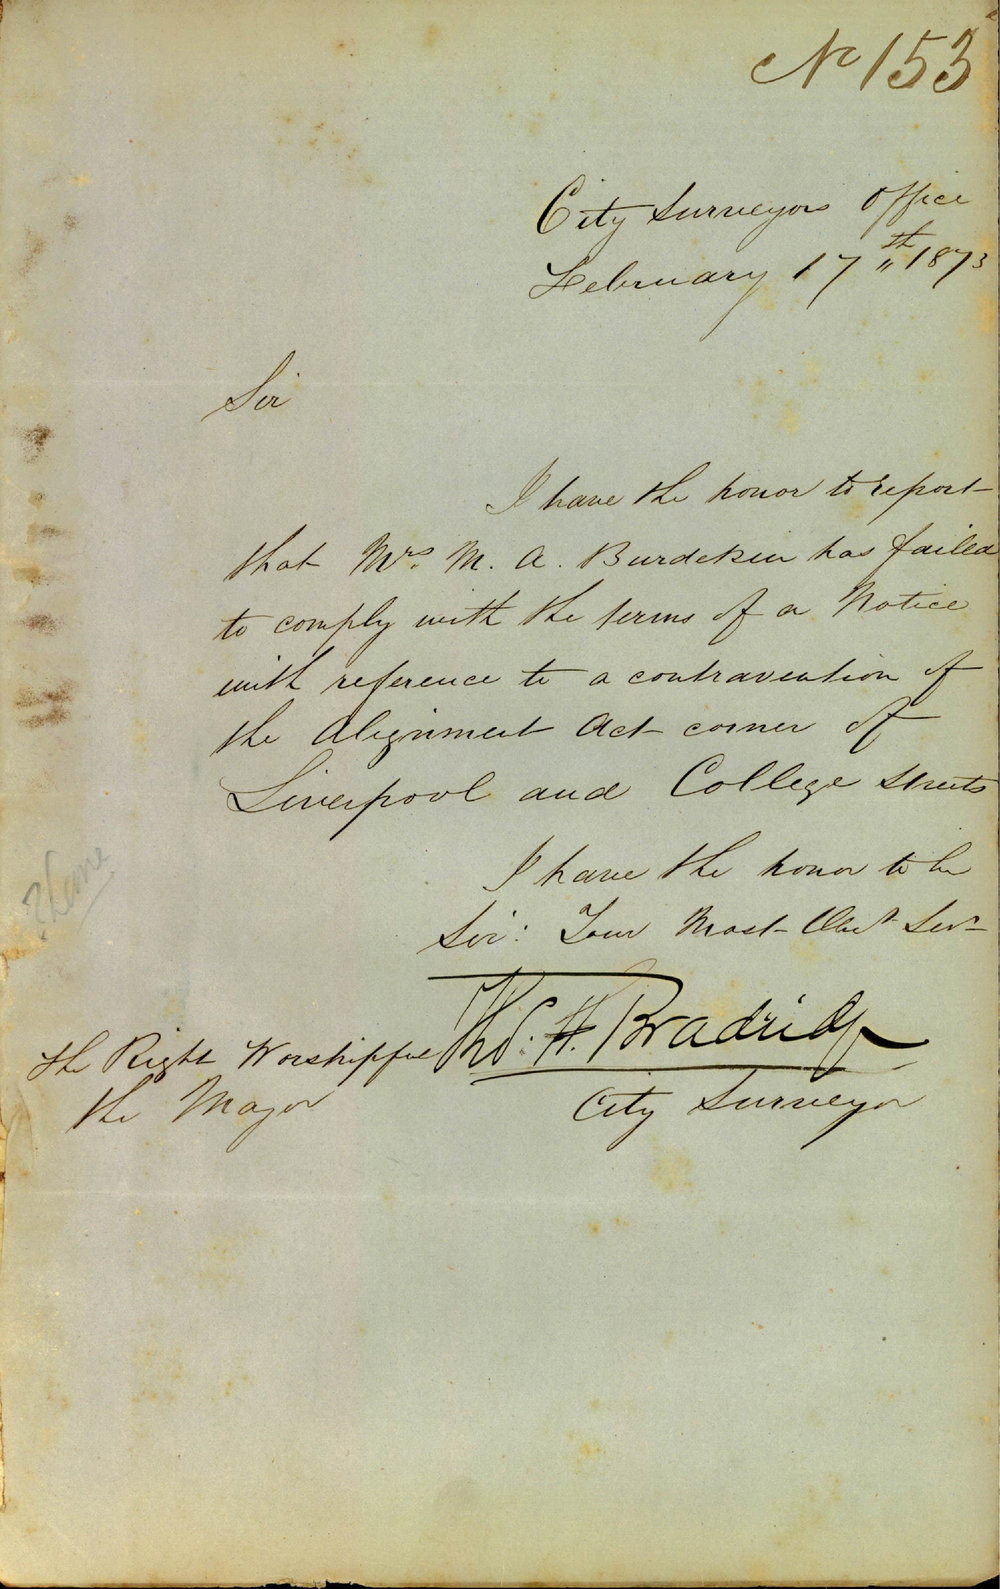 No 153
City Surveyors Office
February 17th 1873
Sir
I have the honor to report
that Mrs. M. A. Burdekin has failed
to comply with the terms of a Notice
with reference to a contravention of
the Alignment Act corner of
Liverpool and College Streets
I have the honor to be
Sir: Your Most Obdt Servt
Thos. H. Bradridge
City Surveyor
The Right Worshipful
the Mayor